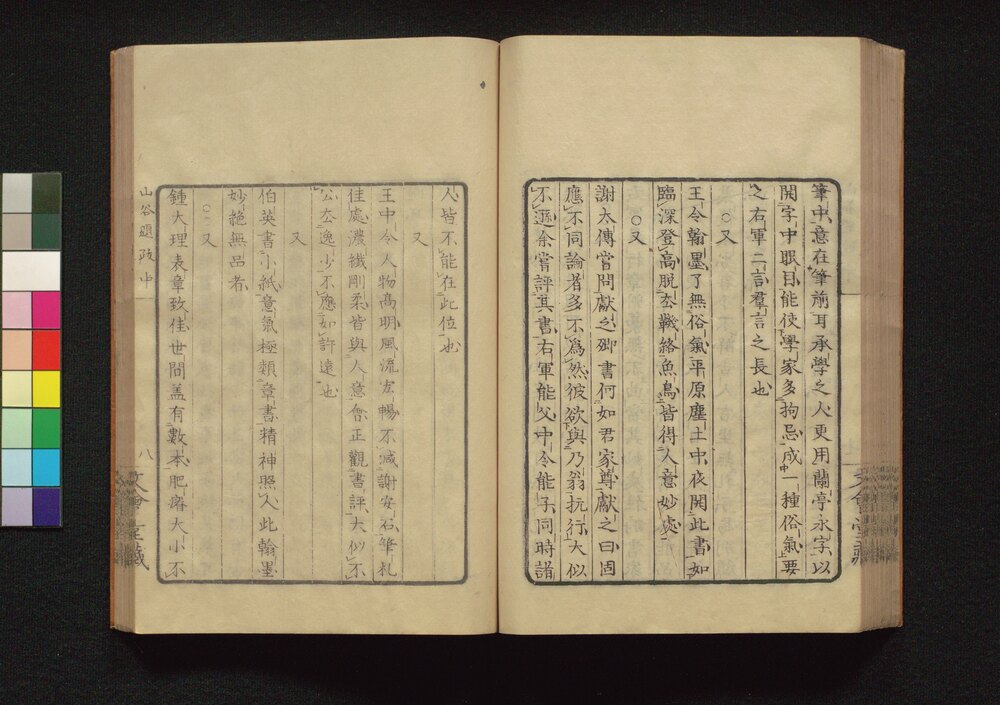 筆中意在筆前耳承學之人更用蘭亭永字以
開字中眼目能使學家多拘忌成一種俗氣要
之右軍二言羣言之長也
○又
王令翰墨了無俗氣平原塵土中夜開此書如
臨深登高脫去鞿絡魚鳥皆得人意妙處
○又
謝太傅嘗問獻之卿書何如君家尊獻之曰固
應不同論者多不為然彼欲與乃翁抗行大似
不遜余嘗評其書右軍能父中令能子同時諸
人皆不能在此位也
又
王中令人物高明風流宏暢不減謝安石筆札
佳處濃纖剛柔皆與人意會正觀書評大似不
公去逸少不應如許遠也
又
伯英書小紙意氣極類章書精神照人此翰墨
妙絕無品者
○又
鍾大理表章致佳世間盖有數本肥瘠大小不
山谷題跋中
八
文會堂藏